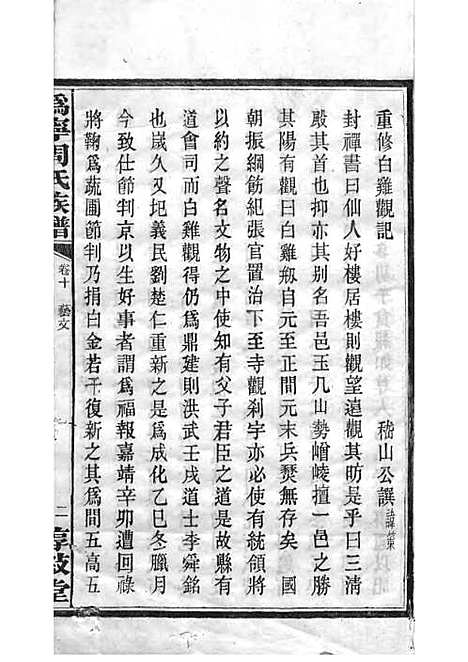 重修白雞觀記　　　　嵇山公譔 諱策
封禪書曰仙人好樓居樓則觀望遠觀其昉是乎曰三清
殿其首也抑亦其名吾邑玉几山勢嶒崚擅一邑之勝
其陽有觀曰白雞剏自元至正間元末兵燹無存矣　國
朝振綱飭紀張官置治下至寺觀剎宇亦必使有統領將
以約之聲名文物之中使知有父子君臣之道故縣有
道會司而白雞觀得仍爲鼎建則洪武壬戌道士李舜銘
也嵗久又圯義民劉楚仁重新之是爲成化乙巳冬臘月
今致仕節判京以生好事者謂爲福報嘉靖辛卯遭回祿
將鞠爲蔬圃節判乃捐白金若干復新之其爲間五高五
爲寧周氏族譜
卷十　藝文
二
敦堂